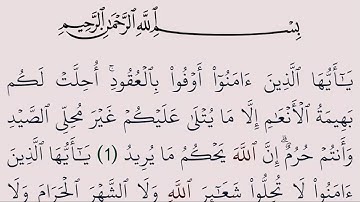 بِسْمِ ٱللَّهِ ٱلرَّحْمَٰنِ ٱلرَّحِيمِ
يَـٰٓأَيُّهَا ٱلَّذِينَ ءَامَنُوٓا۟ أَوْفُوا۟ بِٱلْعُقُودِ ۚ أُحِلَّتْ لَكُم
بَهِيمَةُ ٱلْأَنْعَـٰمِ إِلَّا مَا يُتْلَىٰ عَلَيْكُمْ غَيْرَ مُحِلِّى ٱلصَّيْدِ
وَأَنتُمْ حُرُمٌ ۗ إِنَّ ٱللَّهَ يَحْكُمُ مَا يُرِيدُ (1) يَـٰٓأَيُّهَا ٱلَّذِينَ
ءَامَنُوا۟ لَا تُحِلُّوا۟ شَعَـٰٓئِرَ ٱللَّهِ وَلَا ٱلشَّهْرَ ٱلْحَرَامَ وَلَا